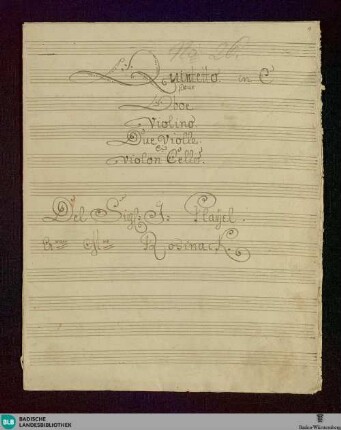 No. 20.
Quintetto in C
pour
L'Oboe
Violino
Due Violle
e
Violon Cello.
Del Sigl: I: Playel.
Rosinack
BLB BADISCHE
LANDESBIBLIOTHEK
Baden-Württemberg